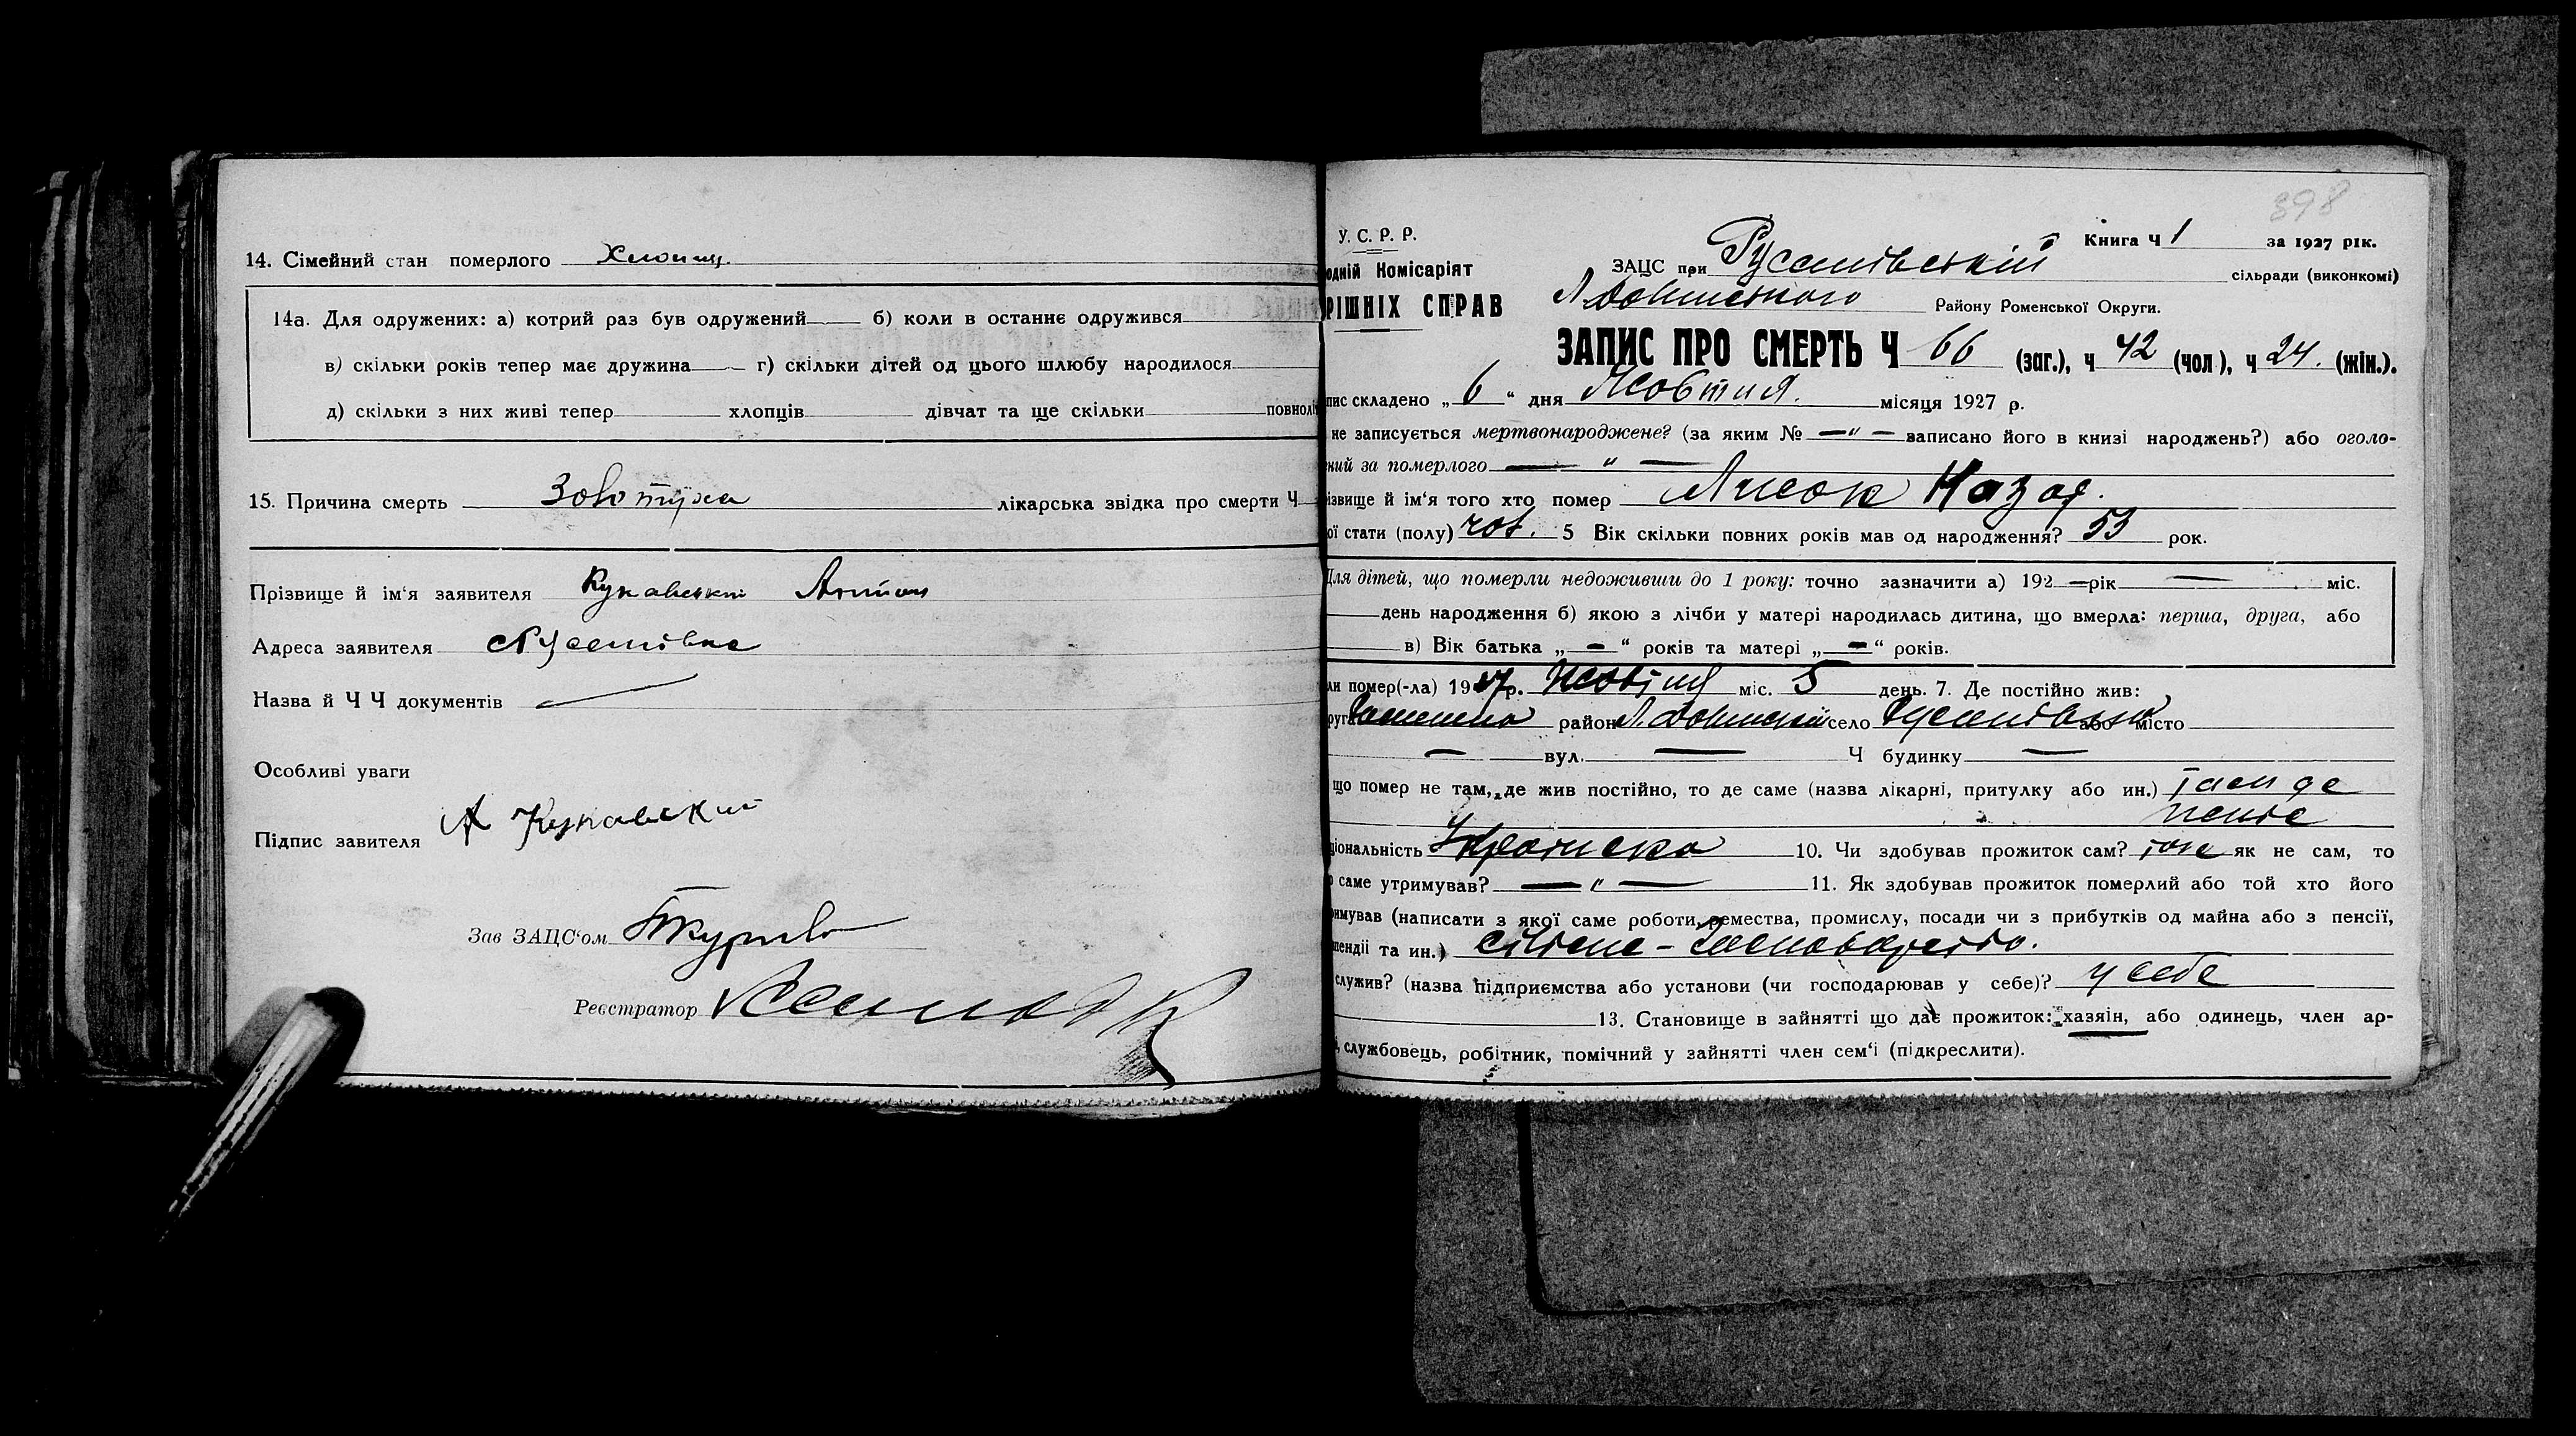 14. Сімейний стан померлого Хлопец.
14а. Для одружених: а) котрий раз був одружений б) коли в останнє одружився
в) скільки років тепер має дружина г) скільки дітей од цього шлюбу народилося
д) скільки з них живі тепер хлопців дівчат та ще скільки повнолі
15. Причина смерть Золотуха лікарська звідка про смерти Ч
Прізвище й ім'я заявителя Антон
Адреса заявителя Русанівка
Назва й Ч Ч документів
Особливі уваги
Підпис завителя А
Зав ЗАЦС'ом
Реєстратор
398
У. С. Р. Р.
одній Комісаріят
РІШНІХ СПРАВ
Книга Ч 1 за 1927 рік.
ЗАЦС при Русанівській сільради (виконкомі)
Л Долинського Району Роменської Округи.
ЗАПИС ПРО СМЕРТЬ Ч 66 (заг.), ч 42 (чол), ч 24. (жін.).
пис складено „ 6 " дня Жовтня. місяця 1927 р.
не записується мертвонароджене? (за яким № — " — записано його в книзі народжень?) або оголо-
ений за померлого — " —
ізвище й ім'я того хто помер Назар.
ої стати (полу) чол. 5 Вік скільки повних років мав од народження? 53 рок.
Для дітей, що померли недоживши до 1 року: точно зазначити а) 192 — рік — міс.
день народження б) якою з лічби у матері народилась дитина, що вмерла: перша, друга, або
в) Вік батька „ — " років та матері „ — " років.
ли помер(-ла) 1927р. Жовтня міс. 5 день. 7. Де постійно жив:
руга Роменська район Л. Долинський село Русанівка або місто
— вул. — Ч будинку —
що помер не там, де жив постійно, то де саме (назва лікарні, притулку або ин.) там де
живе
ціональність Українська 10. Чи здобував прожиток сам? так як не сам, то
о саме утримував? — " — 11. Як здобував прожиток померлий або той хто його
римував (написати з якої саме роботи, ремества, промислу, посади чи з прибутків од майна або з пенсії,
пендії та ин.) сільське-господарство.
служив? (назва підприємства або установи (чи господарював у себе)? у себе
13. Становище в зайнятті що дає прожиток: хазяін, або одинець, член ар-
, службовець, робітник, помічний у зайнятті член сем'і (підкреслити).